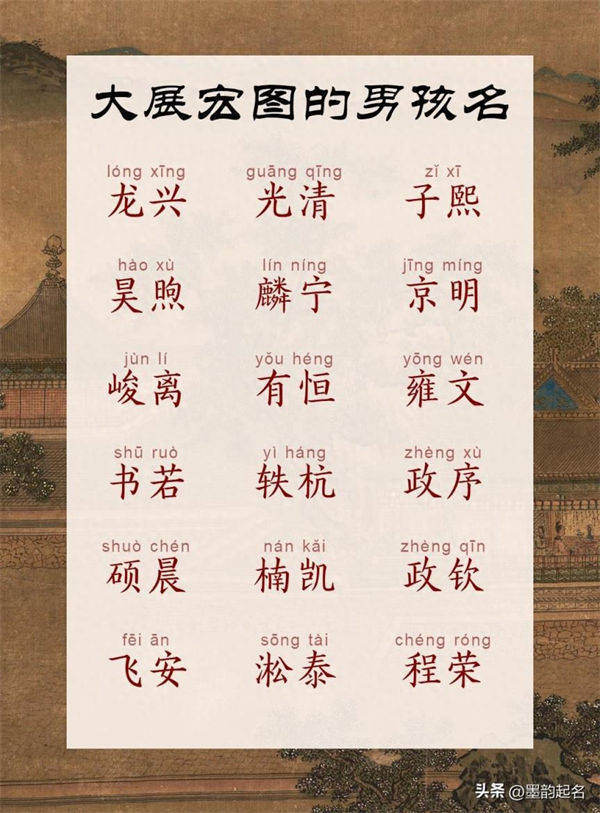 大展宏图的男孩名
lóng xīng guāng qīng zǐ xī
龙兴 光清 子熙
hào xù lín níng jīng míng
昊煦 麟宁 京明
jùn lí yǒu héng yōng wén
峻离 有恒 雍文
shū ruò yì háng zhèng xù
书若 轶杭 政序
shuò chén nán kǎi zhèng qīn
硕晨 楠凯 政钦
fēi ān sōng tài chéng róng
飞安 淞泰 程荣
头条 @墨韵起名